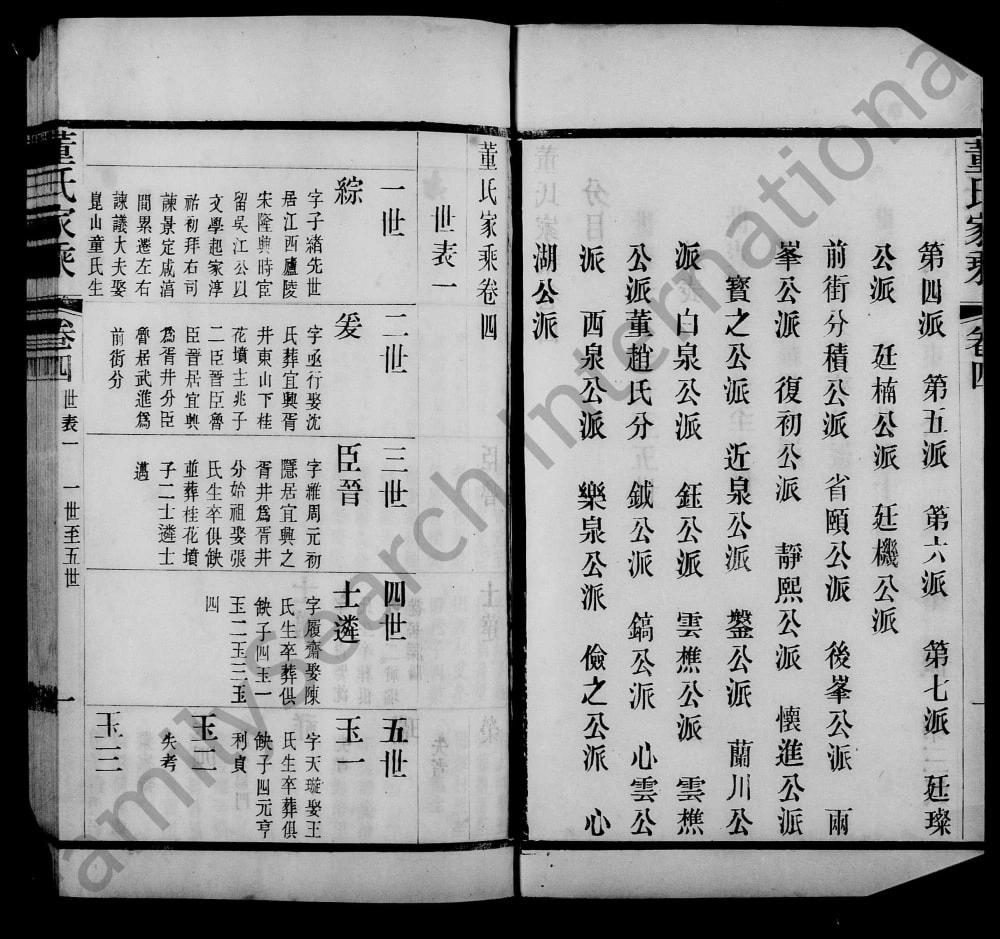 董氏家乘
卷四
一
第四派　第五派　第六派　第七派　廷璨
公派　廷楠公派　廷機公派
前街分積公派　省頤公派　後峯公派　兩
峯公派　復初公派　靜熙公派　懷進公派
寶之公派　近泉公派　鑿公派　蘭川公
派　白泉公派　鈺公派　雲樵公派　雲樵
公派董趙氏分　鉞公派　鎬公派　心雲公
派　西泉公派　樂泉公派　儉之公派　心
湖公派
董氏家乘卷四
世表一
一世
綜
字子緒先世
居江西廬陵
宋隆興時宦
留吳江公以
文學起家淳
祐初拜右司
諫景定咸淳
間累遷左右
諫議大夫娶
崑山童氏生
二世
爰
字亟行娶沈
氏葬宜興胥
井東山下桂
花墳主兆子
二臣晉臣魯
臣晉居宜興
爲胥井分臣
魯居武進爲
前街分
三世
臣晉
字雅周元初
隱居宜興之
胥井爲胥井
分始祖娶張
氏生卒俱缺
並葬桂花墳
子二士遴士
邁
四世
士遴
字履齋娶陳
氏生卒葬俱
缺子四玉一
玉二玉三玉
四
五世
玉一
字天璇娶王
氏生卒葬俱
缺子四元亨
利貞
玉二
失考
玉三
董氏家乘
卷四
世表一　一世至五世
一
familysearch international